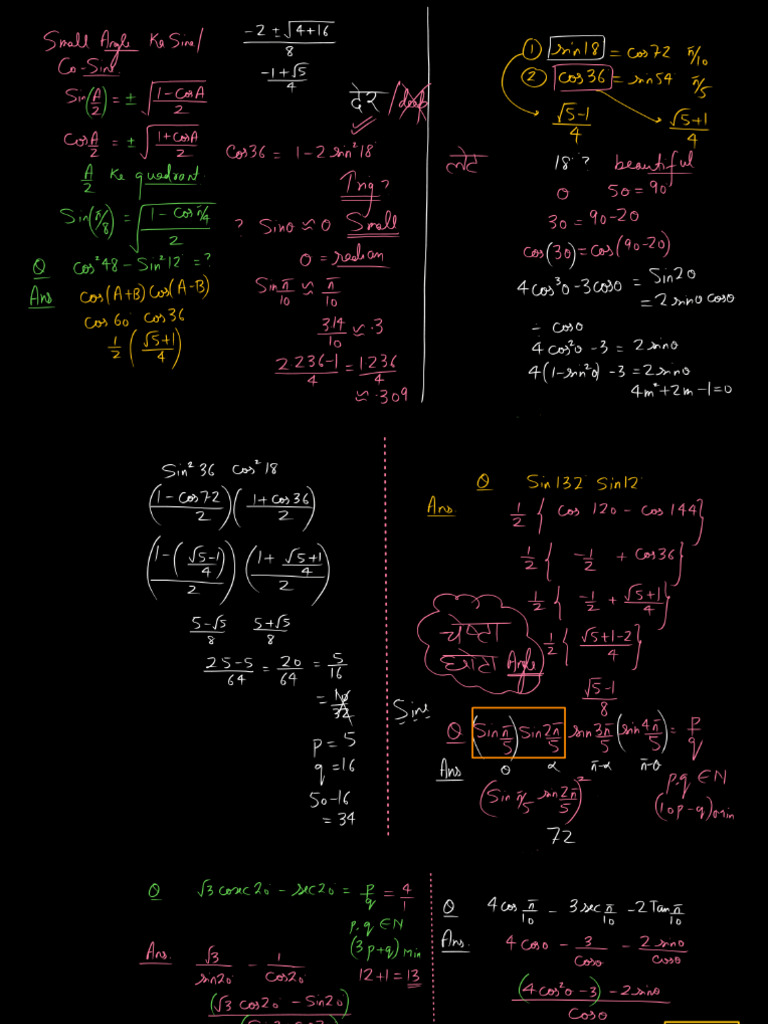 Small Angle Ke Sine/
Co-Sine
Sin(A/2) = ± √((1-CosA)/2)
CosA/2 = ± √((1+CosA)/2)
A/2 Ke quadrant
Sin(π/8) = √((1-Cosπ/4)/2)
Q Cos²48 - Sin²12 = ?
Ans Cos(A+B) Cos(A-B)
Cos60 Cos36
1/2 ((√5+1)/4)
(-2 ± √(4+16))/8
(-1+√5)/4
देर /
Cos36 = 1-2 Sin²18
Trig?
? Sinθ ≈ θ Small
θ = radian
Sinπ/10 ≈ π/10
3.14/10 ≈ .3
(2.236-1)/4 = 1.236/4
≈ .309
① Sin18 = Cos72 π/10
② Cos36 = Sin54 π/5
(√5-1)/4 (√5+1)/4
लेट 18°? beautiful
θ 5θ = 90
3θ = 90-2θ
Cos(3θ) = Cos(90-2θ)
4Cos³θ - 3Cosθ = Sin2θ
= 2 Sinθ Cosθ
÷ Cosθ
4Cos²θ - 3 = 2Sinθ
4(1-Sin²θ) - 3 = 2Sinθ
4m²+2m-1=0
Sin²36 Cos²18
((1-Cos72)/2)((1+Cos36)/2)
((1-((√5-1)/4))/2) ((1+(√5+1)/4)/2)
(5-√5)/8 (5+√5)/8
(25-5)/64 = 20/64 = 5/16
= 10/32
p = 5
q = 16
50-16
= 34
Q Sin132 Sin12
Ans 1/2 { Cos 120 - Cos 144 }
1/2 { -1/2 + Cos36 }
1/2 { -1/2 + (√5+1)/4 }
1/2 { (√5+1-2)/4 }
(√5-1)/8
चेष्टा
छोटा Angle
Sine
Q (Sinπ/5) Sin2π/5 Sin3π/5 (Sin4π/5) = p/q
Ans θ α π-α π-θ
(Sinπ/5 Sin2π/5)²
p.q ∈ N
(10p-q)min
72
Q √3 Cosec20 - Sec20 = p/q = 4/1
p.q ∈ N
(3p+q)Min
12+1 = 13
Ans. √3/Sin20 - 1/Cos20
(√3 Cos20 - Sin20)
Q 4Cosπ/10 - 3Secπ/10 - 2Tanπ/10
Ans. 4Cosθ - 3/Cosθ - 2Sinθ/Cosθ
((4Cos²θ-3) - 2Sinθ)/Cosθ